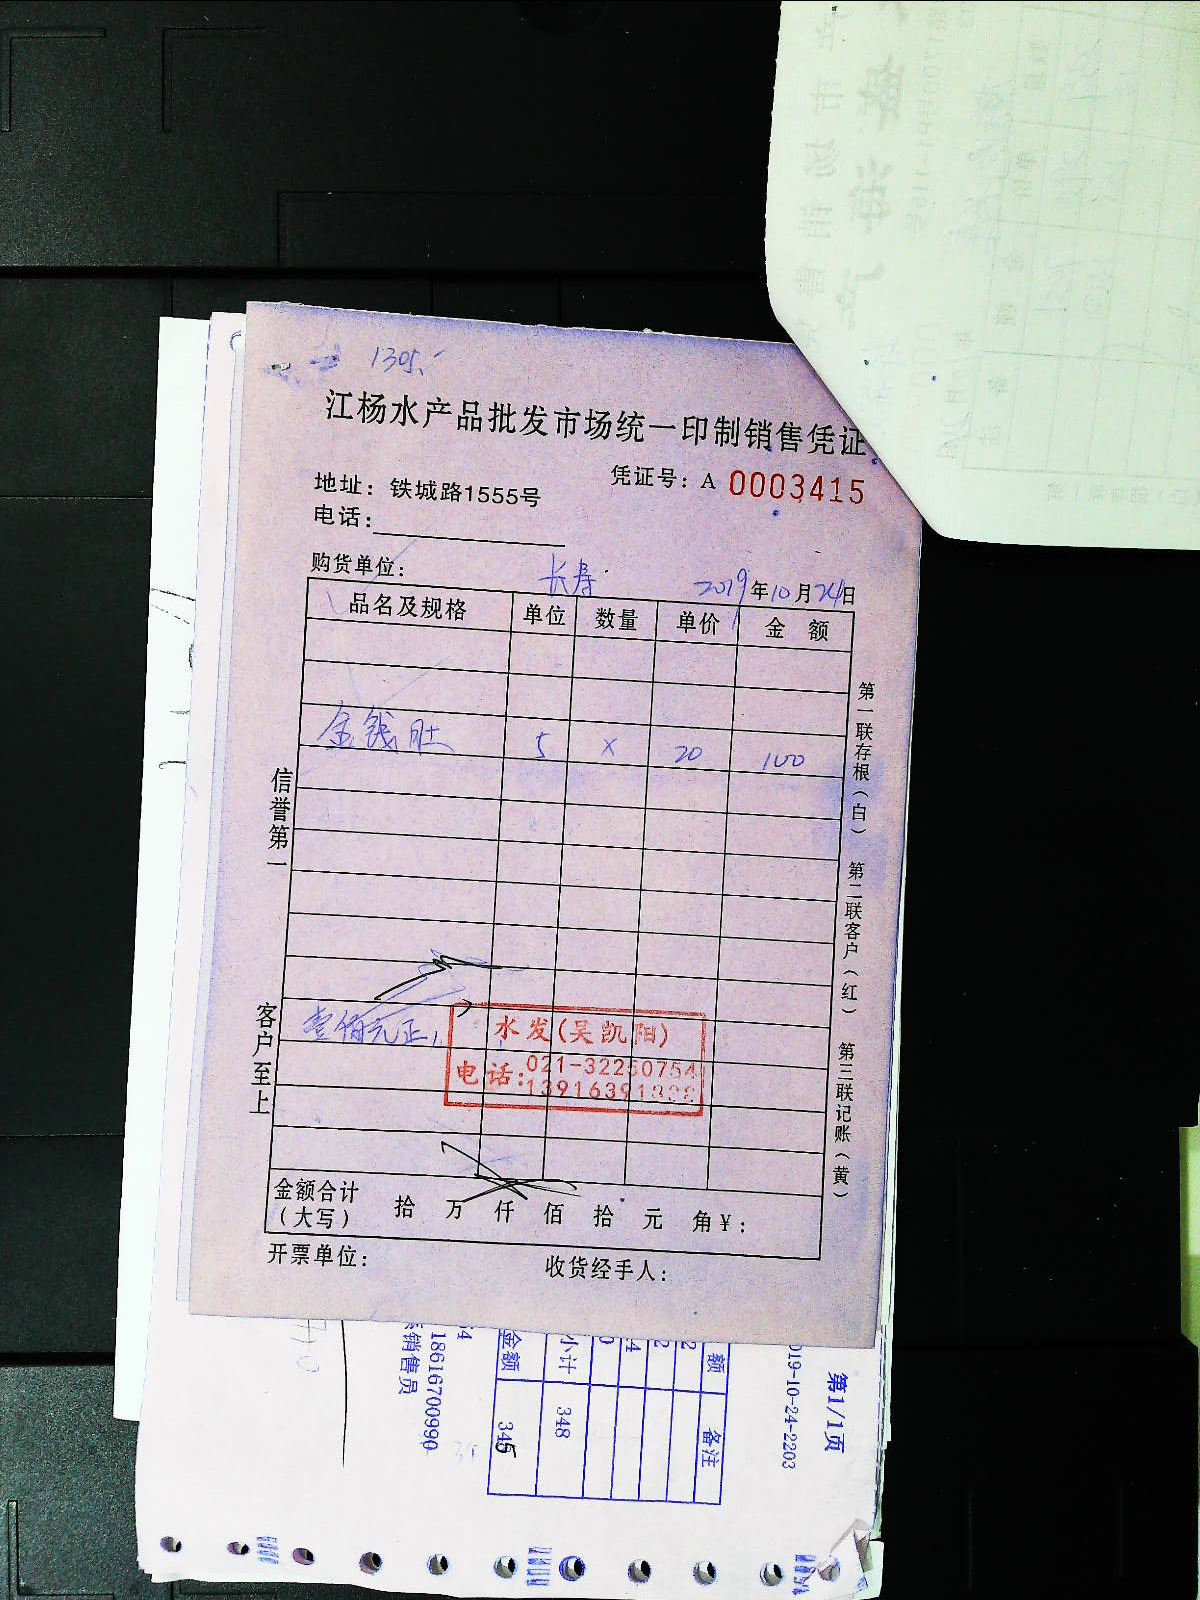 1305.
江杨水产品批发市场统一印制销售凭证
凭证号：A 0003415
地址：铁城路1555号
电话：
购货单位： 长寿 2019年10月24日
品名及规格 单位 数量 单价 金额
金钱肚 5 × 20 100
信誉第一
客户至上
壹佰元正
水发(吴凯阳)
电话：021-32250754
金额合计 拾 万 仟 佰 拾 元 角￥：
（大写）
开票单位： 收货经手人：
第一联存根（白） 第二联客户（红） 第三联记账（黄）
第1/1页
019-10-24-2203
额 备注
小计 348
金额 345
18616700990
销售员